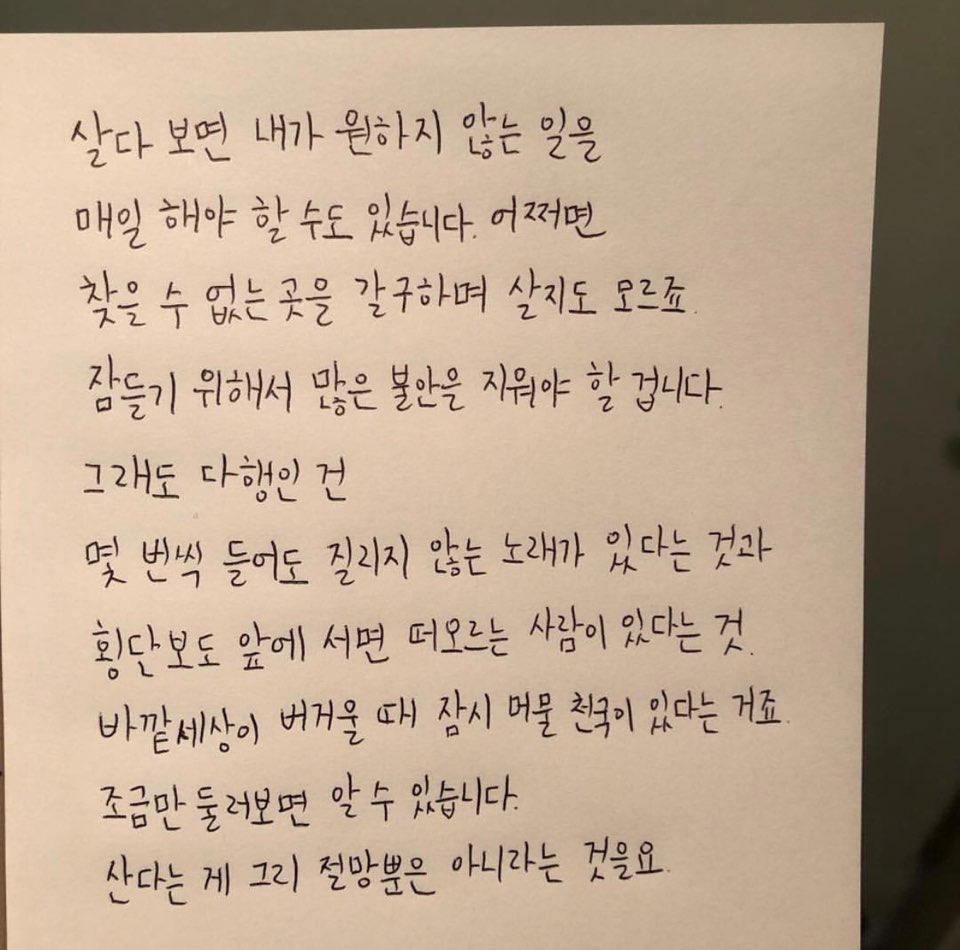 살다 보면 내가 원하지 않는 일을
매일 해야 할 수도 있습니다. 어쩌면
찾을 수 없는 곳을 갈구하며 살지도 모르죠.
잠들기 위해서 많은 불안을 지워야 할 겁니다.
그래도 다행인 건
몇 번씩 들어도 질리지 않는 노래가 있다는 것과
횡단보도 앞에 서면 떠오르는 사람이 있다는 것.
바깥세상이 버거울 때 잠시 머물 천국이 있다는 거죠.
조금만 둘러보면 알 수 있습니다.
산다는 게 그리 절망뿐은 아니라는 것을요.